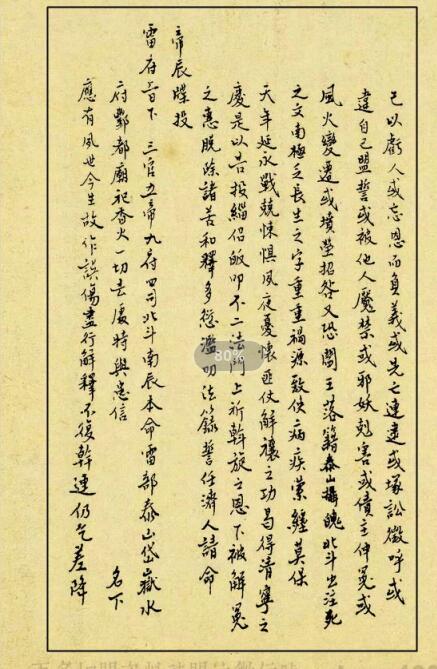 己以虧人或忘恩而負義或先亡連逮或塚訟徵呼或
違自己盟誓或被他人魘禁或邪妖剋害或債主伸冤或
風火變遷或墳塋招咎又恐閻王落籍泰山攝魄北斗出注死
之文南極乏長生之字重重禍源致使病疾縈纏莫保
天年延永戰兢悚惧夙夜憂懷匪仗解禳之功曷得清寧之
慶是以告投緇侶皈叩不二法門上祈斡旋之恩下被解冤
之惠脱除諸苦和釋多愆濫叨法籙誓任濟人請命
帝辰牒投
雷府言下 三官五帝九府四司北斗南辰本命雷部泰山岱嶽水
府酆都廟祀香火一切去處特與患信 名下
應有夙世今生故作誤傷盡行解釋不復幹連仍乞差降
80%